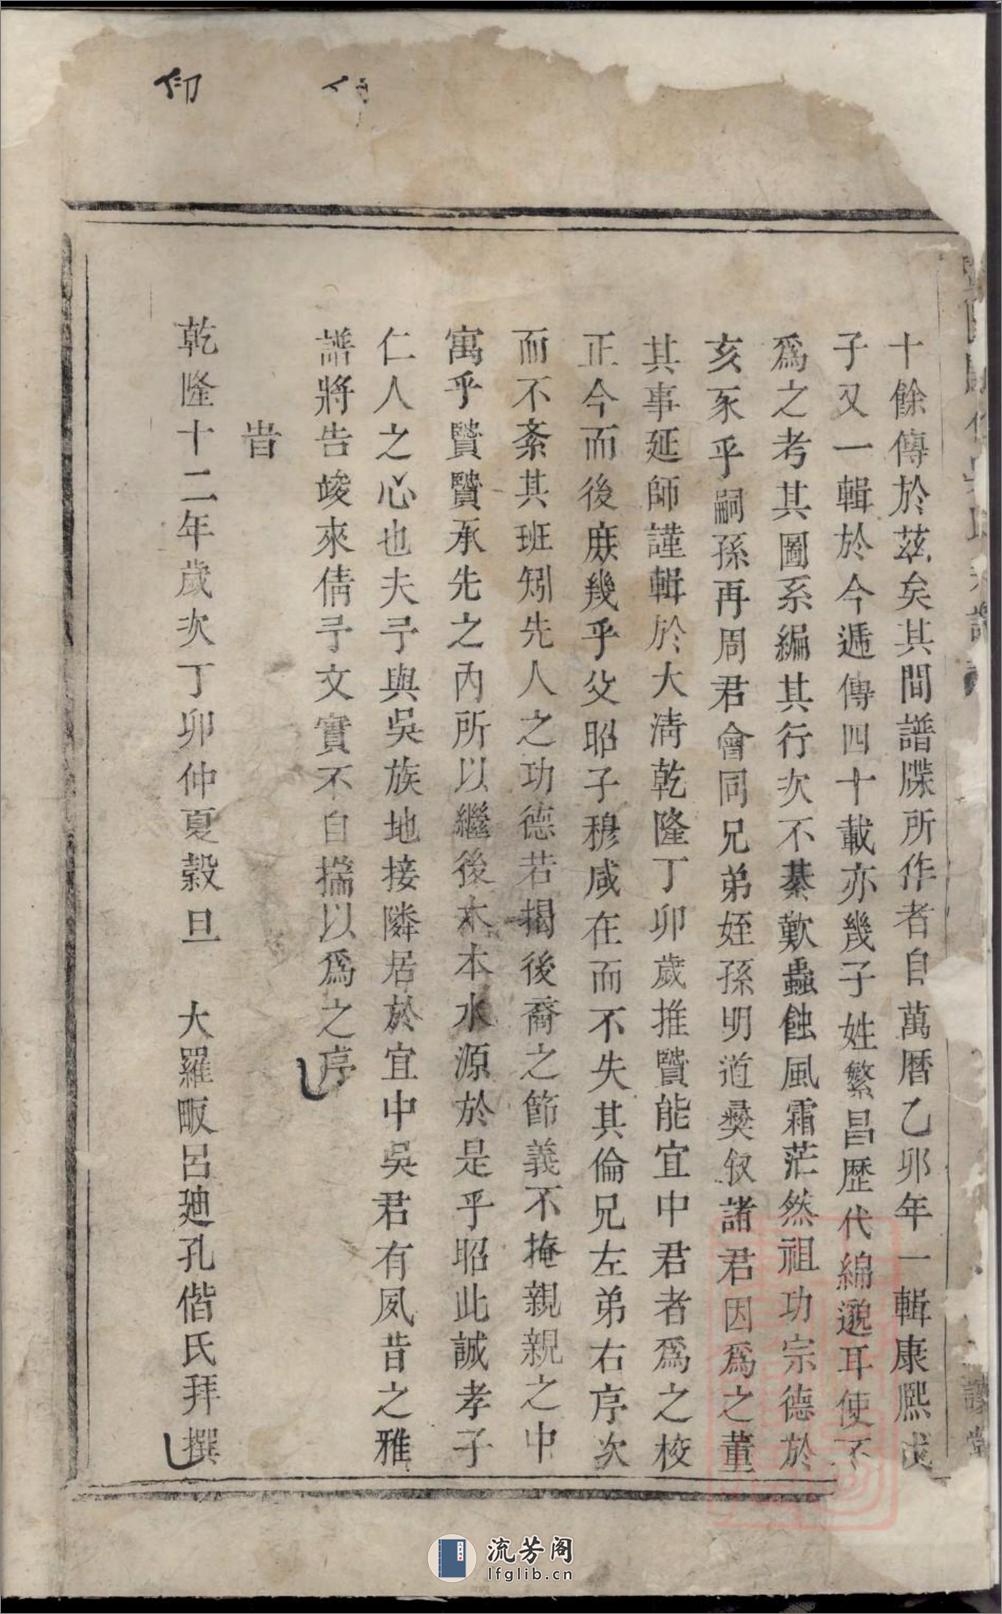 仰
十餘傳於茲矣其間譜牒所作者自萬曆乙卯年一輯康熙戊
子又一輯於今遞傳四十載亦幾子姓繁昌歷代綿邈耳使不
爲之考其圖系編其行次不綦歎蟲蝕風霜茫然祖功宗德於
亥豕乎嗣孫再周君會同兄弟姪孫明道彝敘諸君因爲之董
其事延師謹輯於大淸乾隆丁卯歲推賢能宜中君者爲之校
正今而後庶幾乎父昭子穆咸在而不失其倫兄左弟右序次
而不紊其班矧先人之功德若揭後裔之節義不掩親親之中
寓乎賢賢承先之內所以繼後木本水源於是乎昭此誠孝子
仁人之心也夫予與吳族地接隣居於宜中吳君有夙昔之雅
譜將告竣來倩予文實不自揣以爲之序
旹
乾隆十二年歲次丁卯仲夏穀旦 大羅畈呂廸孔偕氏拜撰
流芳阁
lfglib.cn